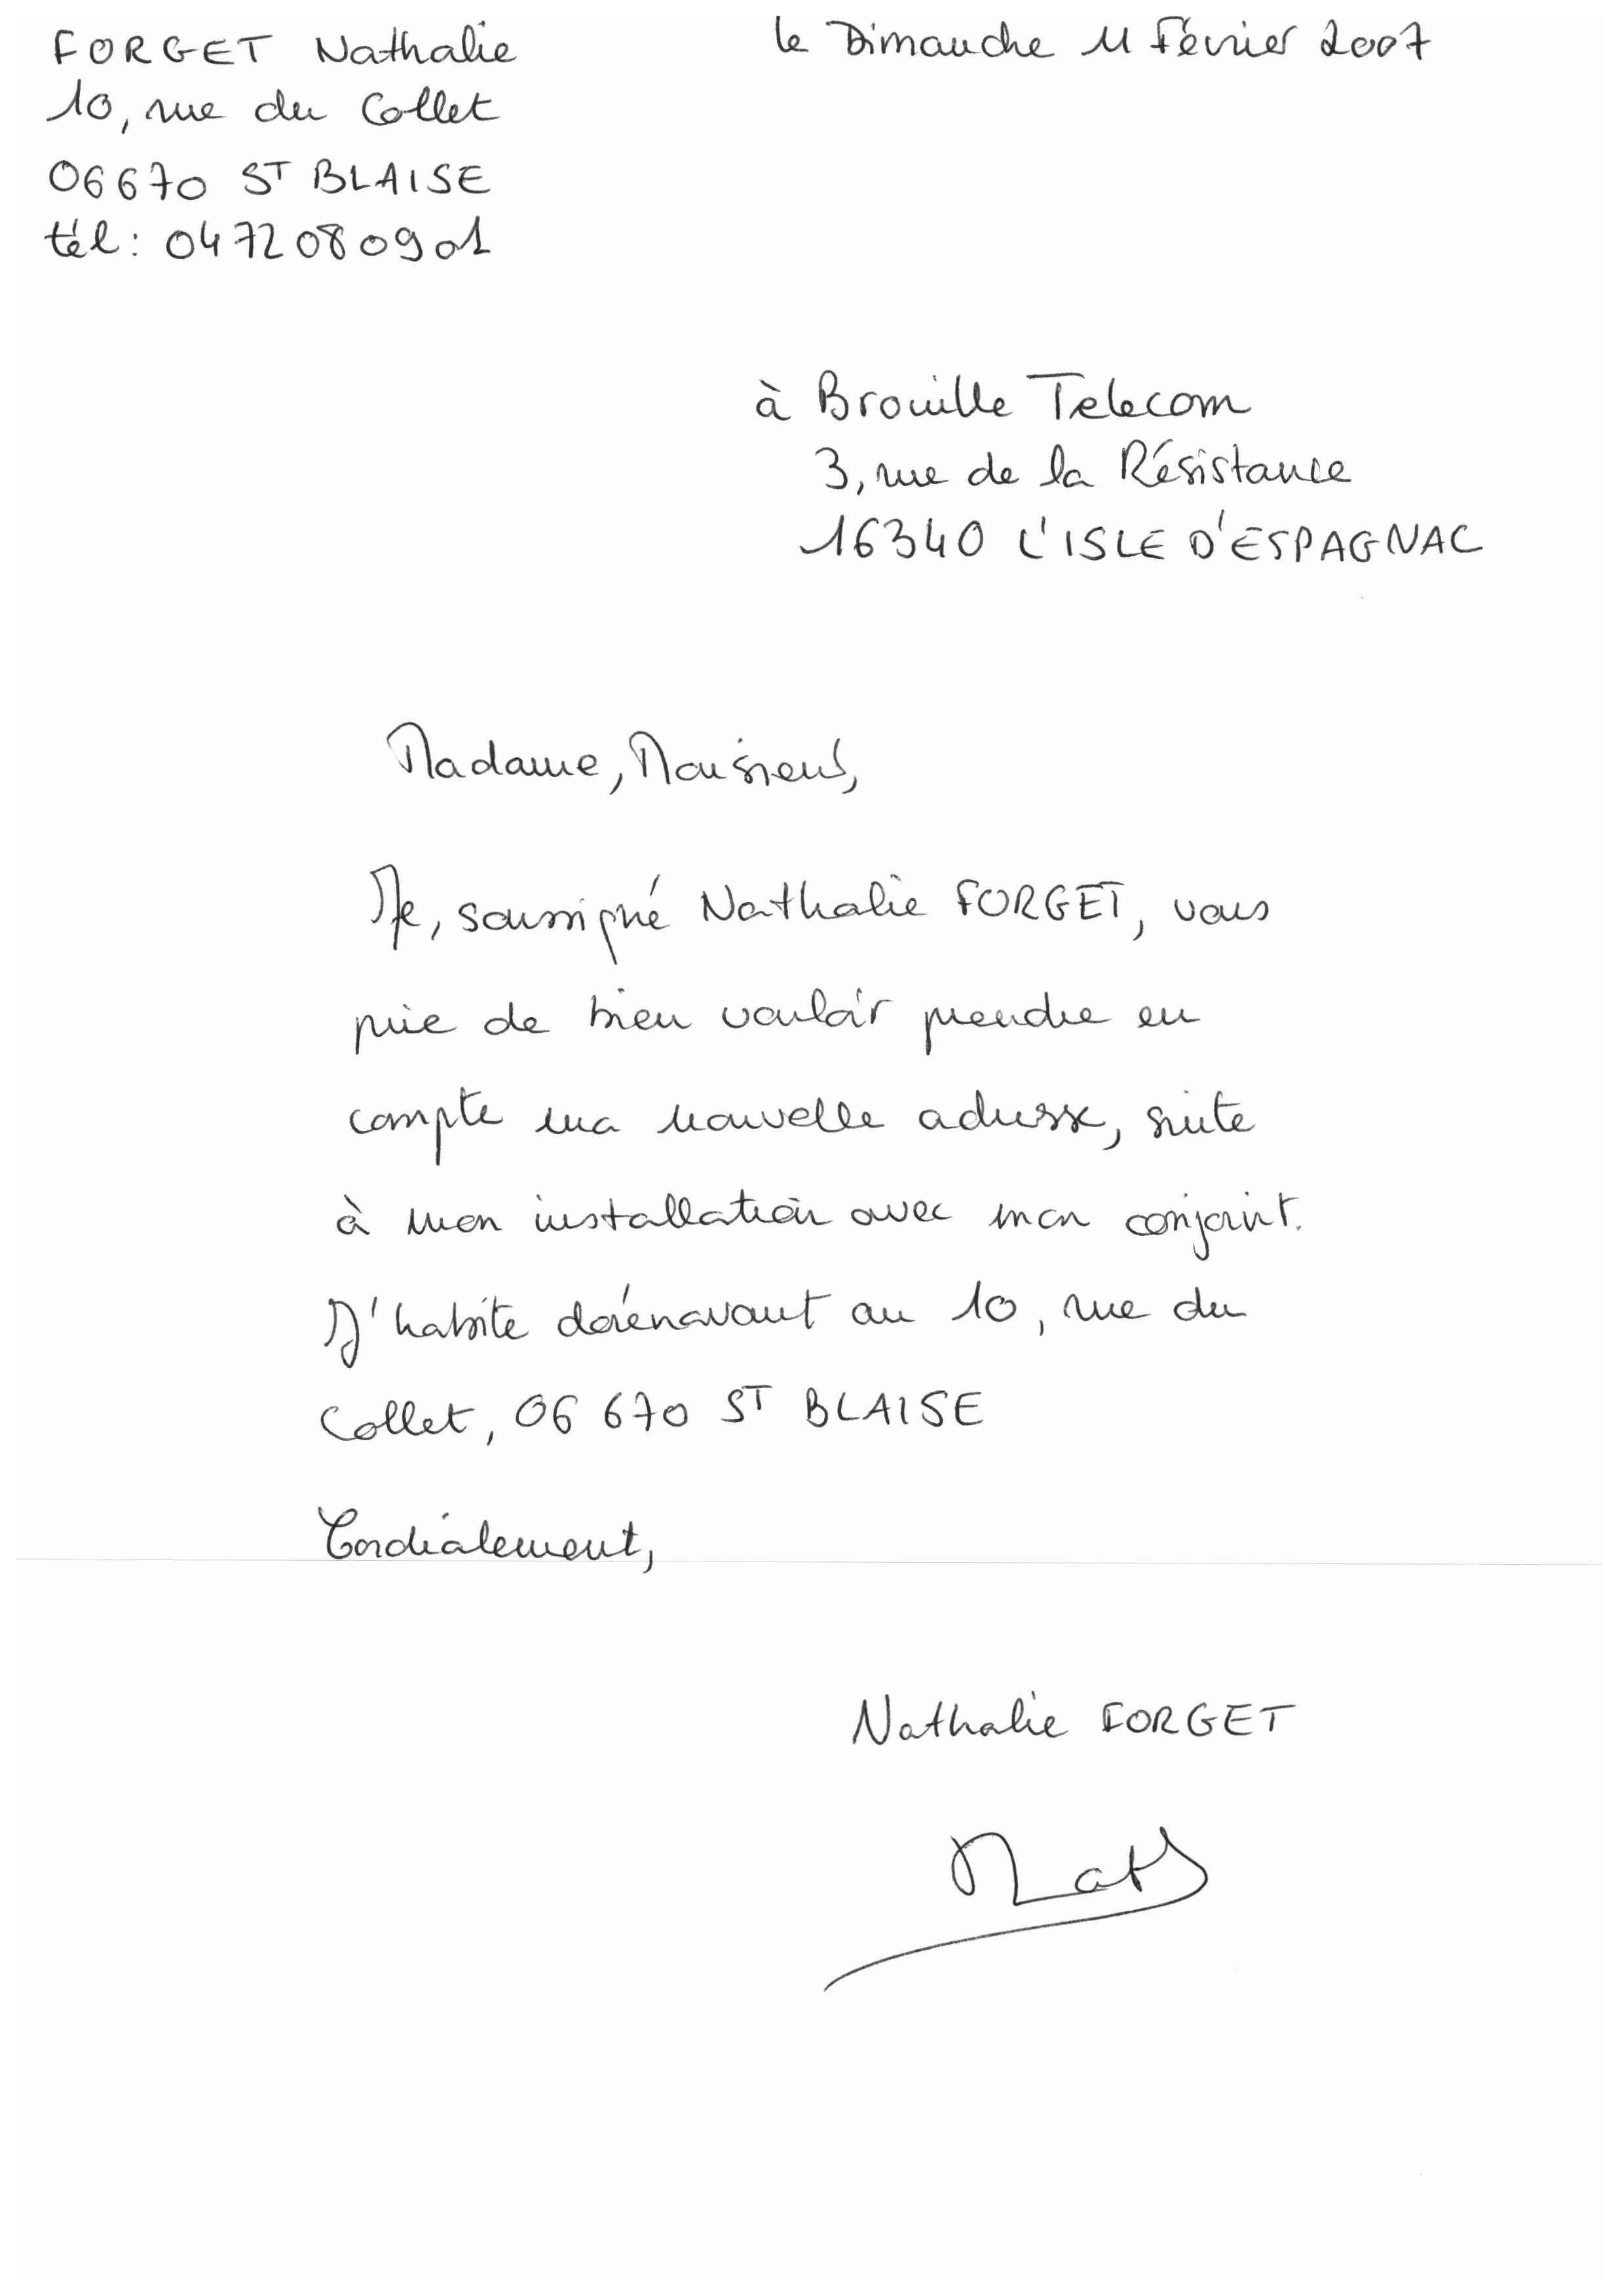 FORGET Nathalie
le Dimanche 11 Février 2007
10, rue du Collet
06670 ST BLAISE
tél : 04 72 08 09 01
à Brouille Telecom
3, rue de la Résistance
16340 L'ISLE D'ESPAGNAC
Madame, Monsieur,
Je, soussigné Nathalie FORGET, vous
prie de bien vouloir prendre en
compte ma nouvelle adresse, suite
à mon installation avec mon conjoint.
J'habite dorénavant au 10, rue du
Collet, 06 670 ST BLAISE
Cordialement,
Nathalie FORGET
Nath